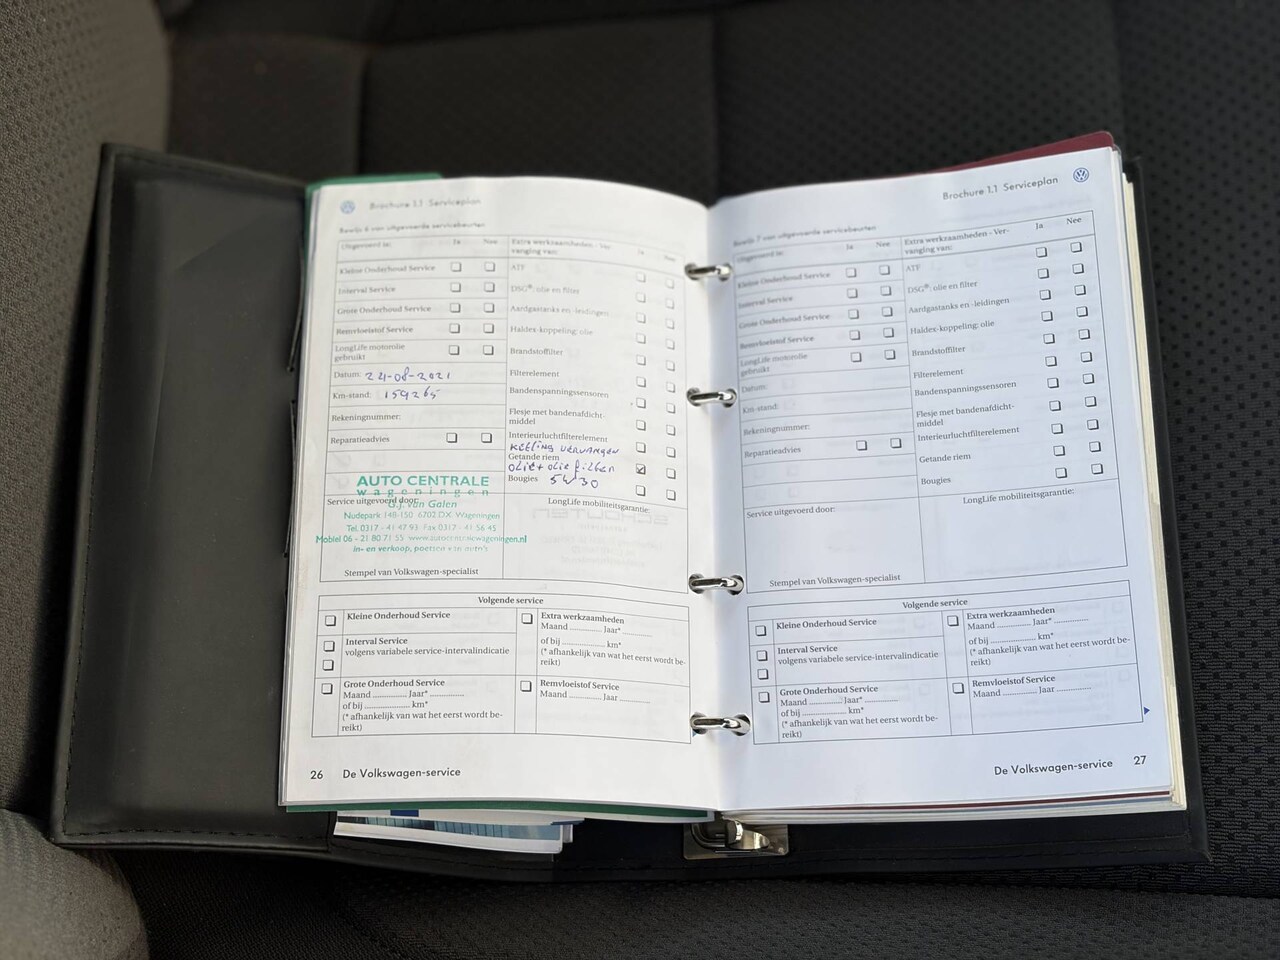 Brochure 1.1 Serviceplan
Bewijs 6 van uitgevoerde servicebeurten
Uitgevoerd is:
Ja
Nee
Kleine Onderhoud Service
Interval Service
Grote Onderhoud Service
Remvloeistof Service
LongLife motorolie
gebruikt
Datum: 24-08-2021
Km-stand: 159265
Rekeningnummer:
Reparatieadvies
Extra werkzaamheden - Ver-
vanging van:
Ja
Nee
ATF
DSG®; olie en filter
Aardgastanks en -leidingen
Haldex-koppeling: olie
Brandstoffilter
Filterelement
Bandenspanningssensoren
Flesje met bandenafdicht-
middel
Interieurluchtfilterelement
ketting vervangen
Getande riem
olie + olie filter
Bougies 5W30
AUTO CENTRALE
wageningen
Service uitgevoerd door:
G.J. van Galen
Nudepark 148-150 6702 DX Wageningen
Tel. 0317 - 41 47 93 Fax 0317 - 41 56 45
Mobiel 06 - 21 80 71 55 www.autocentralewageningen.nl
in- en verkoop, poetsen van auto's
Stempel van Volkswagen-specialist
LongLife mobiliteitsgarantie:
Volgende service
Kleine Onderhoud Service
Interval Service
volgens variabele service-intervalindicatie
Grote Onderhoud Service
Maand ............ Jaar* ............
of bij ............ km*
(* afhankelijk van wat het eerst wordt be-
reikt)
Extra werkzaamheden
Maand ............ Jaar* ............
of bij ............ km*
(* afhankelijk van wat het eerst wordt be-
reikt)
Remvloeistof Service
Maand ............ Jaar ............
26 De Volkswagen-service
Brochure 1.1 Serviceplan
Bewijs 7 van uitgevoerde servicebeurten
Uitgevoerd is:
Ja
Nee
Kleine Onderhoud Service
Interval Service
Grote Onderhoud Service
Remvloeistof Service
LongLife motorolie
gebruikt
Datum:
Km-stand:
Rekeningnummer:
Reparatieadvies
Extra werkzaamheden - Ver-
vanging van:
Ja
Nee
ATF
DSG®; olie en filter
Aardgastanks en -leidingen
Haldex-koppeling: olie
Brandstoffilter
Filterelement
Bandenspanningssensoren
Flesje met bandenafdicht-
middel
Interieurluchtfilterelement
Getande riem
Bougies
Service uitgevoerd door:
Stempel van Volkswagen-specialist
LongLife mobiliteitsgarantie:
Volgende service
Kleine Onderhoud Service
Interval Service
volgens variabele service-intervalindicatie
Grote Onderhoud Service
Maand ............ Jaar* ............
of bij ............ km*
(* afhankelijk van wat het eerst wordt be-
reikt)
Extra werkzaamheden
Maand ............ Jaar* ............
of bij ............ km*
(* afhankelijk van wat het eerst wordt be-
reikt)
Remvloeistof Service
Maand ............ Jaar ............
De Volkswagen-service 27